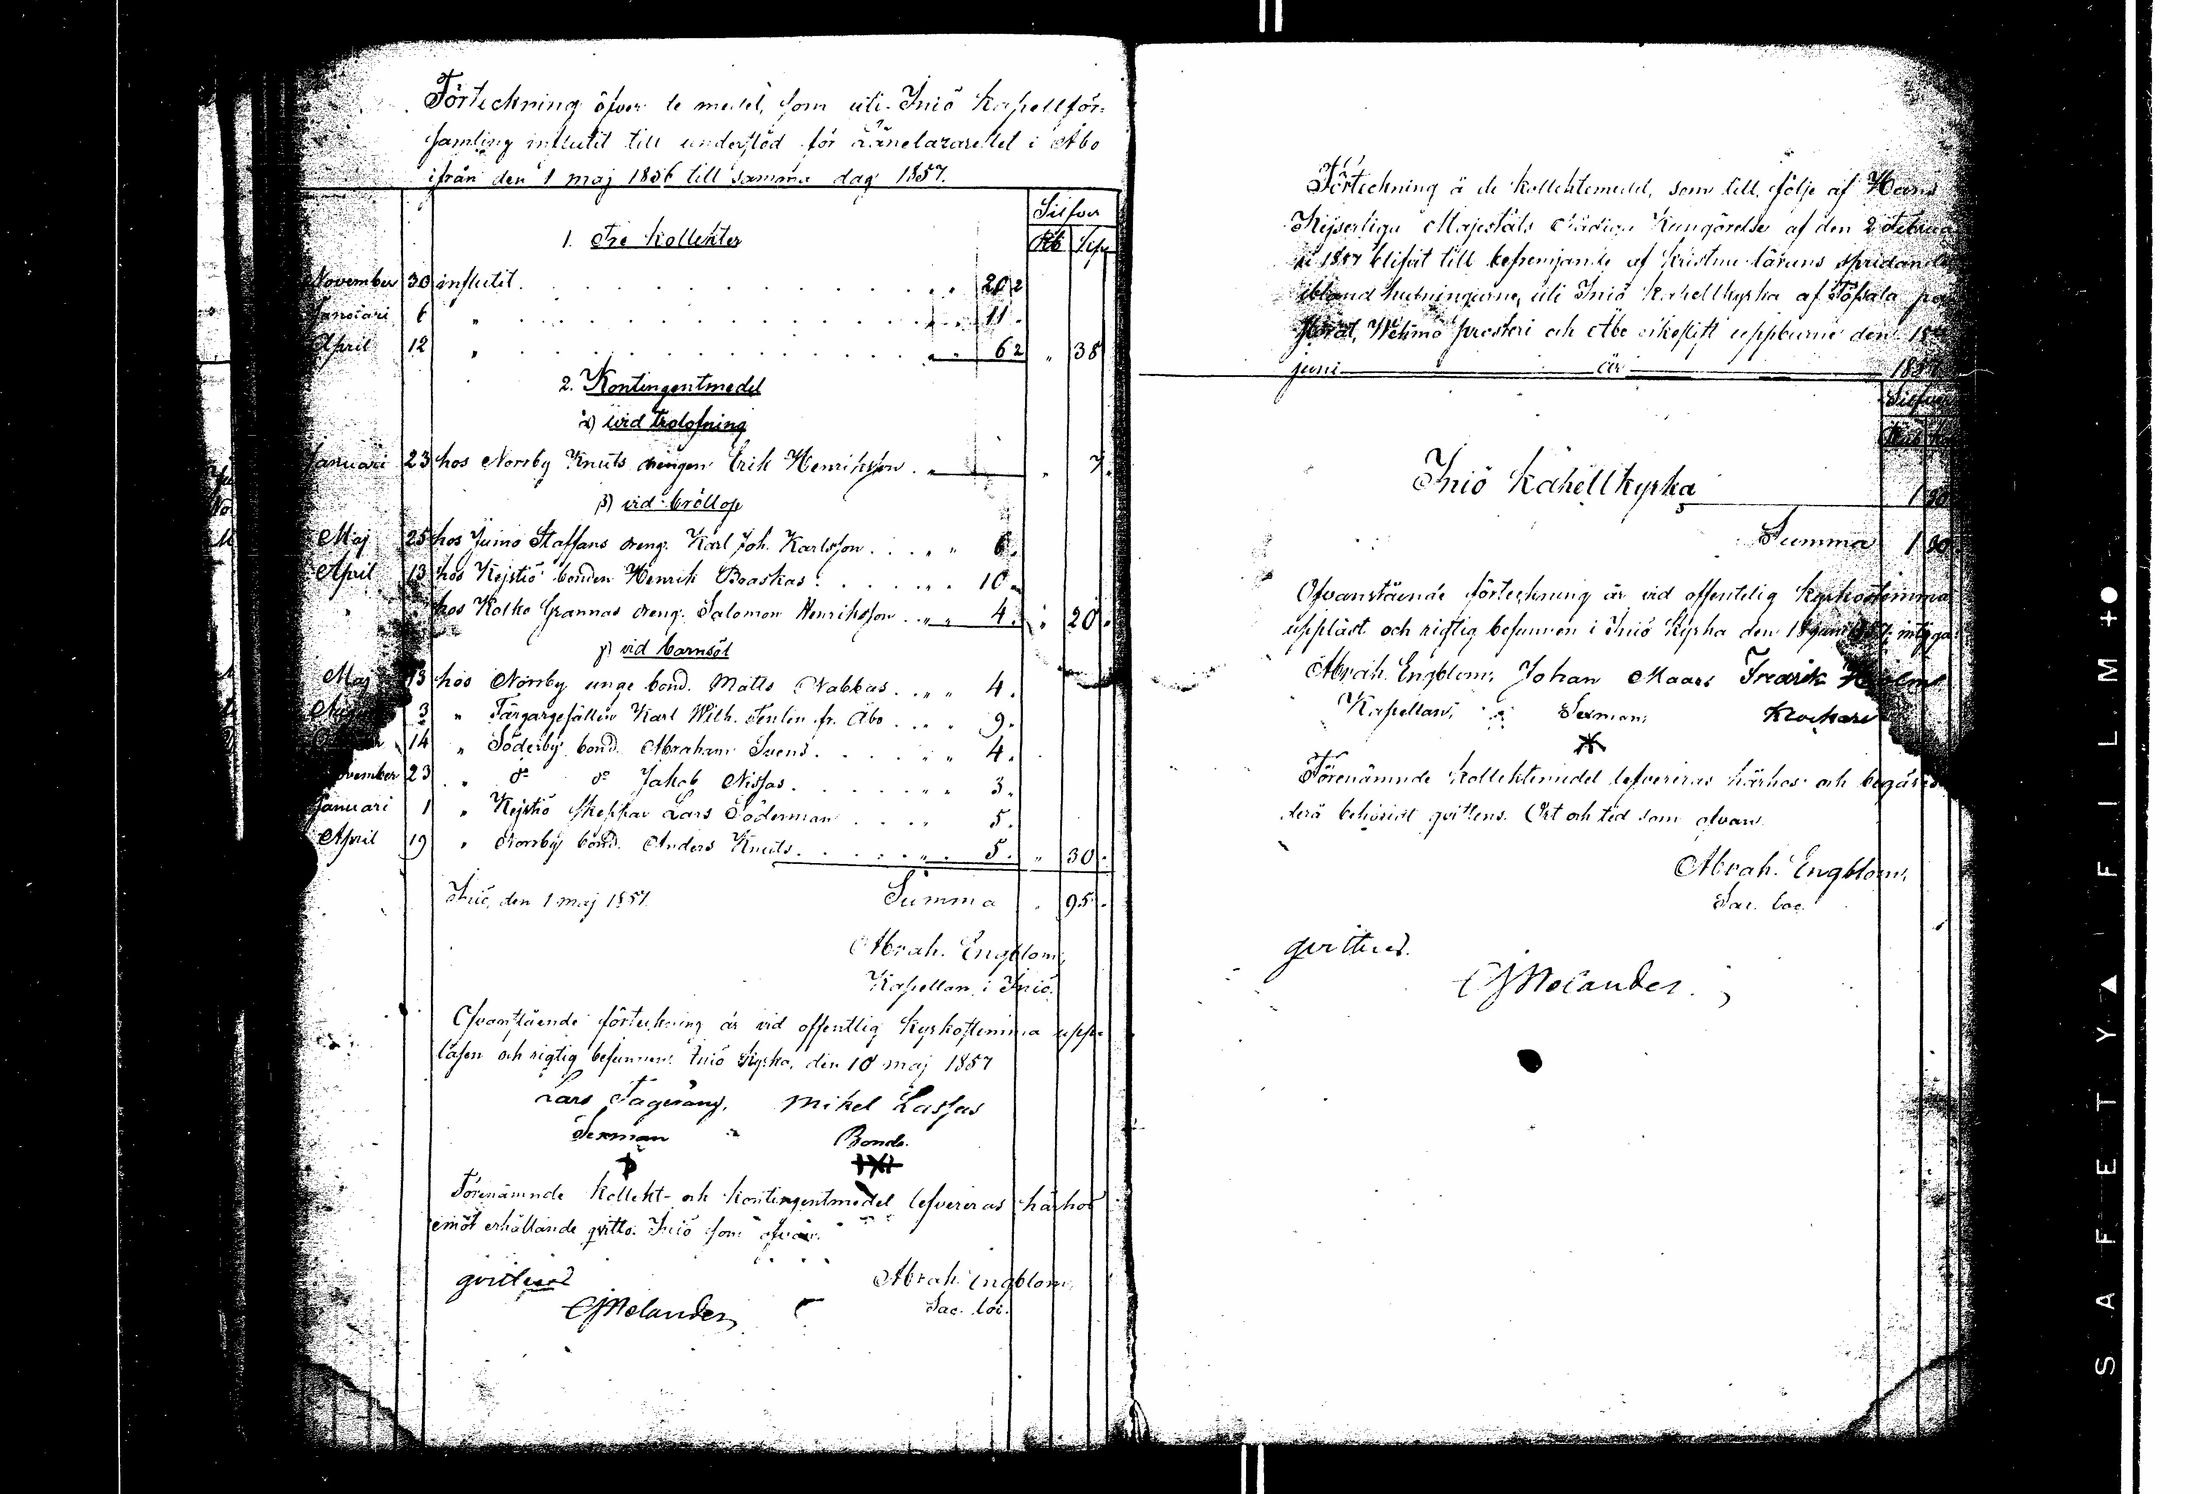 Förteckning öfver de medel, som uti Iniö Kapellför-
samling influtit till understöd för Länelazarettet i Åbo
ifrån den 1 maj 1856 till samma dag 1857.
Silfver
Rb Kop
1. Tre kollekter
November 30 influtit . . . " " 20 2
Januari 6 " . . . " " 11.
April 12 " . . . " " 6 2 " 38
2. Kontingentmedel
α) vid trolofning
Januari 23 hos Norrby Knuts drengen Erik Henriksson . " " 7.
β) vid bröllop
Maj 25 hos Jumo Staffans dreng. Karl Joh. Karlsson . . . " " 6.
April 13 hos Kejstiö bonden Henrik Baaskas . . . " " 10 "
" hos Kolko Grannas dreng. Salomon Henriksson . . " " 4. " 20.
γ) vid barnsöl
Maj 13 hos Norrby unge bond. Matts Nabbas . . " " 4.
3 " Färgargesällen Karl Wilh. Tenlin fr. Åbo . . " " 9.
14 " Söderby bond. Abraham Svens . . . " " 4.
November 23 " d:o d:o Jakob Nissas . . . " " 3.
Januari 1 " Kejstiö Skeppar Lars Söderman . . . " " 5.
April 19 " Norrby bond. Anders Knuts . . . " " 5. " 30.
Iniö, den 1 maj 1857. Summa " 95.
Abrah. Engblom,
Kapellan i Iniö.
Ofvanstående förteckning är vid offentlig Kyrkostemma upp-
läsen och rigtig befunnen. Iniö Kyrka, den 10 maj 1857
Lars Mikel Lassas
Sexman Bonde.
Förenämnde kollekt- och kontingentmedel lefvereras härhos
emot erhållande qvitto. Iniö som ofvan.
qvitteras Abrah. Engblom,
CJMolander Sac. loc.
Förteckning å de kollektemedel, som till följe af Hans
Kejserliga Majestäts Nådiga Kungörelse af den 2 Februa-
ri 1857 blifvit till befremjande af kristna lärans spridande
ibland hedningarne, uti Iniö Kapellkyrka af Töfsala
Wehmo prosteri och Åbo erkestift uppburne den 1
juni år 1857
Silfver
Iniö Kapellkyrka 1 30
Summa 1 30
Ofvanstående förteckning är vid offentelig Kyrkostemma
uppläst och rigtig befunnen i Iniö Kyrka den 1 juni 1857; intyga:
Abrah. Engblom, Johan Maars Fredrik
Kapellan, Sexman, Klockare
Förenämnde kollektemedel lefvereras härhos och begäres
derå behörigt qvittens. Ort och tid som ofvan.
Abrah. Engblom,
Sac. loc.
qvitteras.
CJMolander.
SAFETY FILM